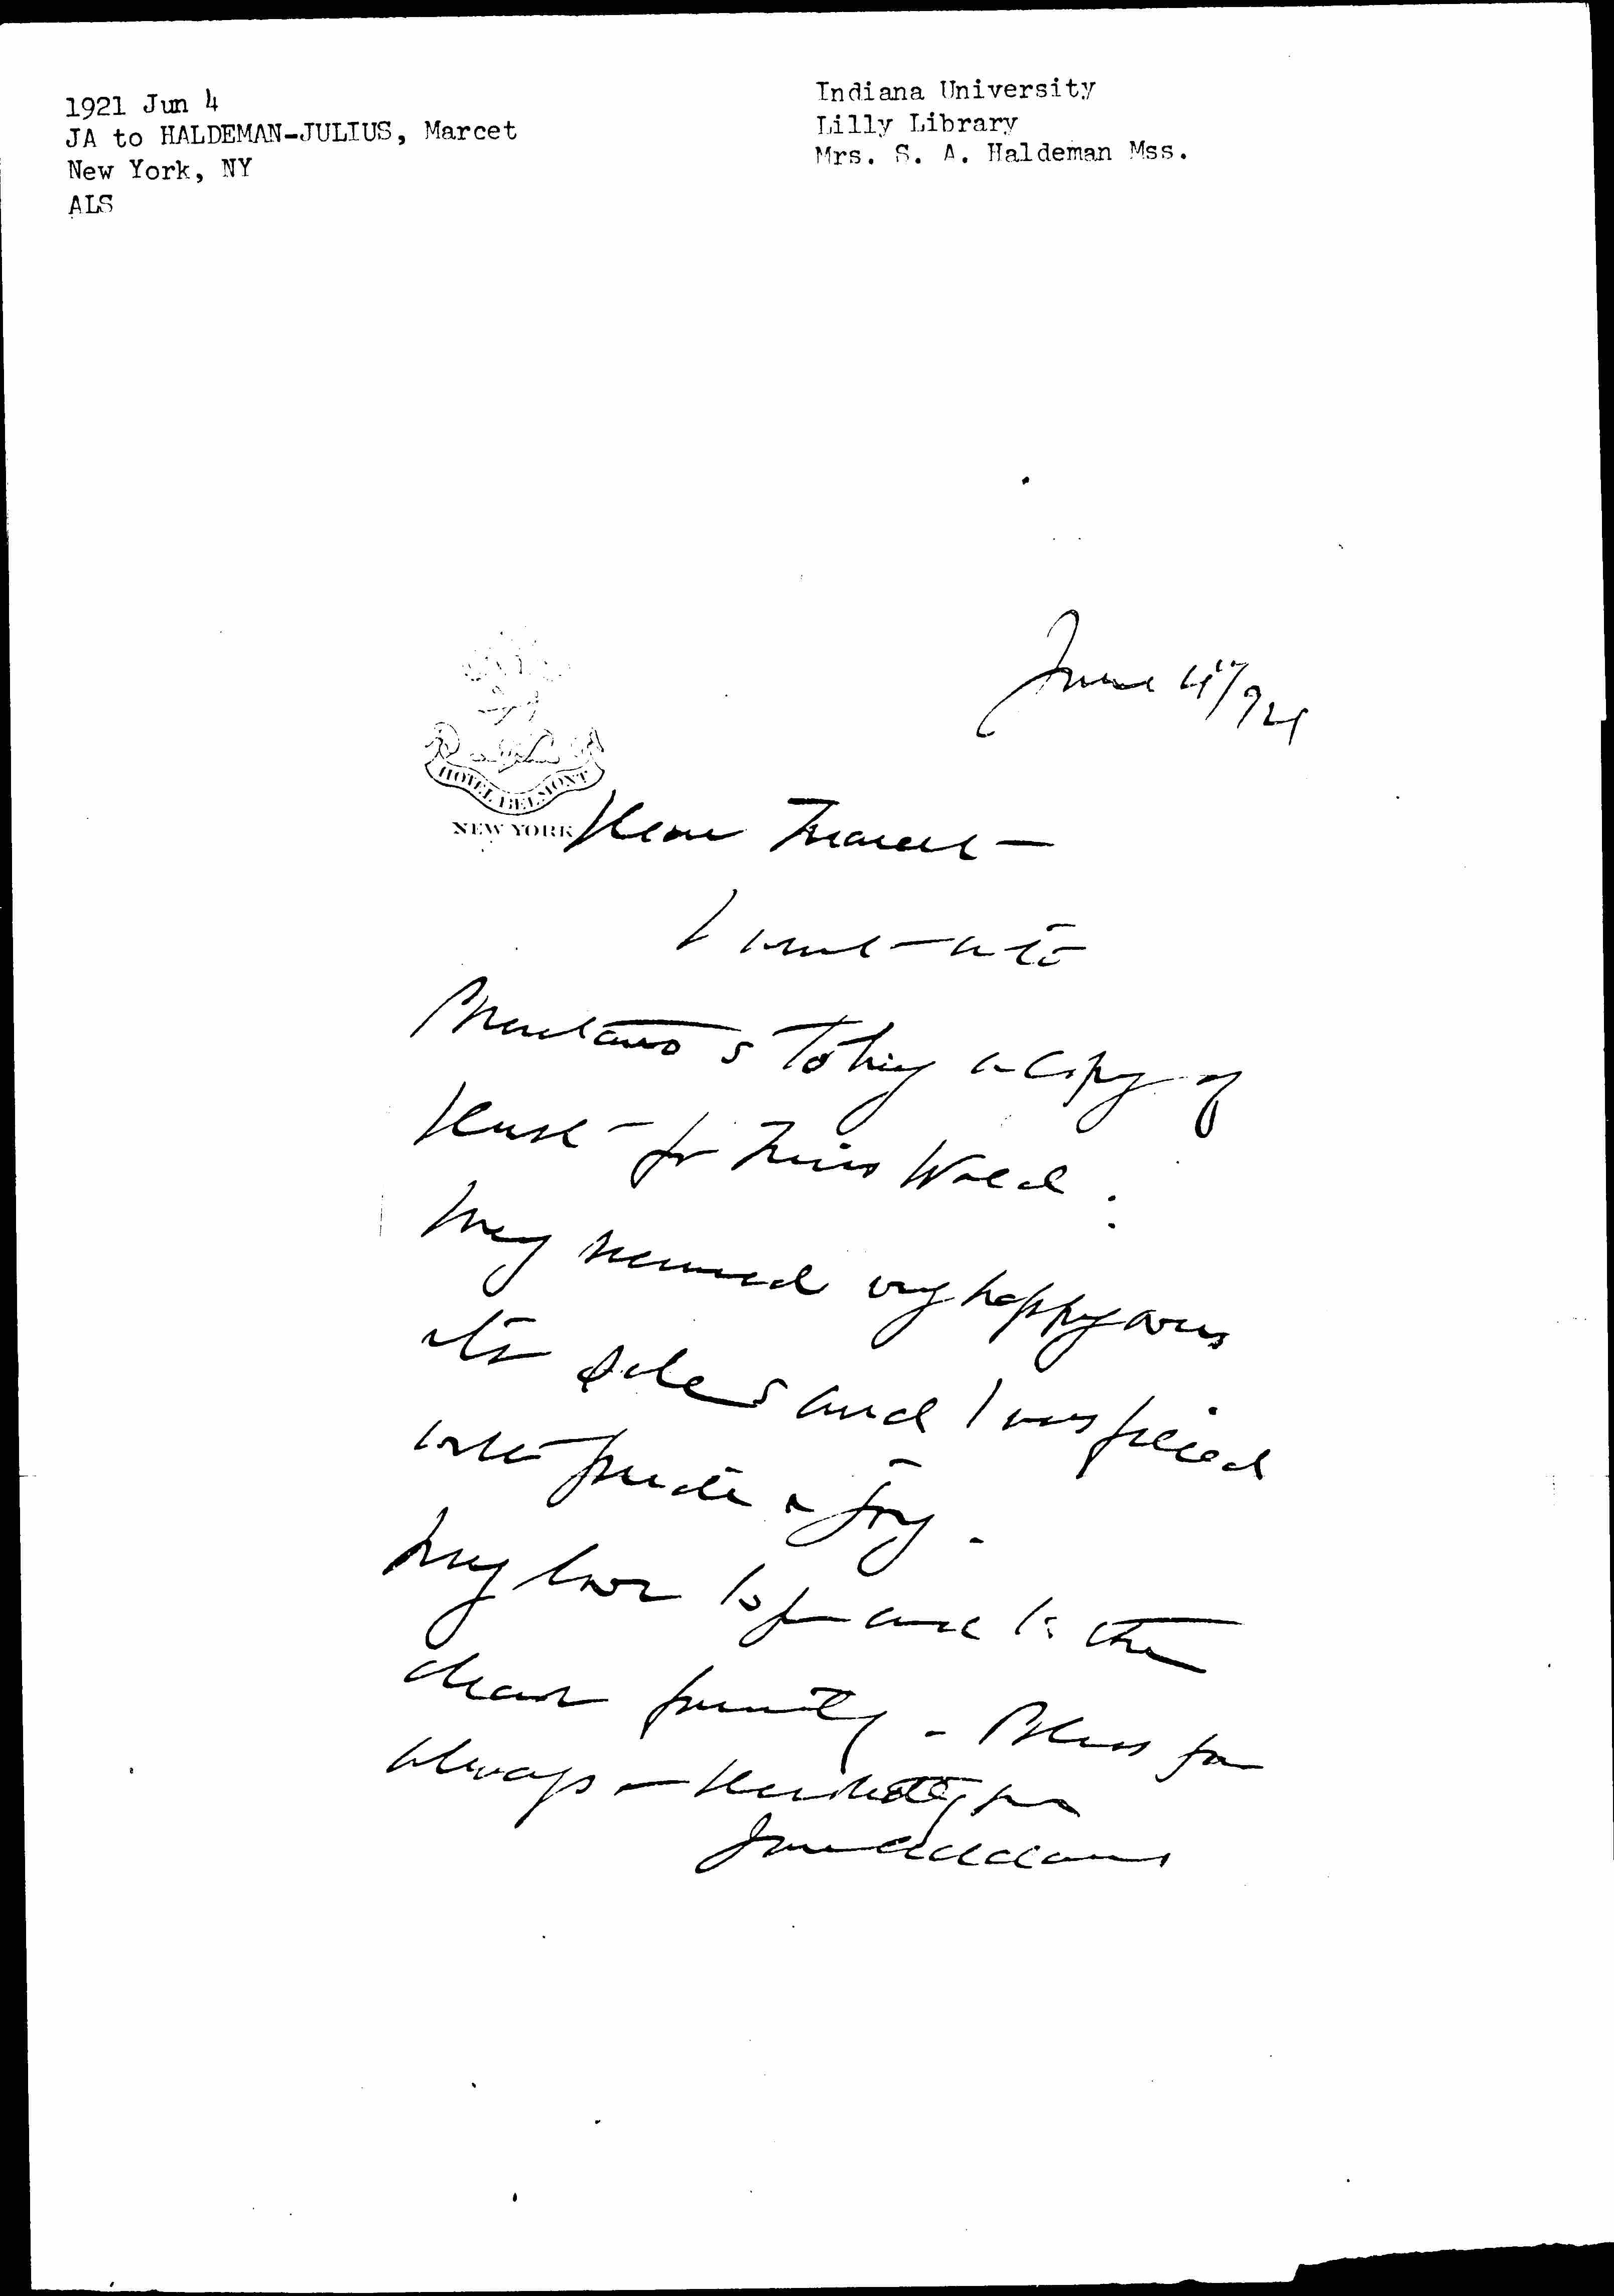 1921 Jun 4
JA to HALDEMAN-JULIUS, Marcet
New York, NY
ALS
Indiana University
Lilly Library
Mrs. S. A. Haldeman Mss.
June 4"/921
HOTEL BELMONT
NEW YORK
Dear Marcet —
I went into
Brentano's to buy a copy of
Dust - for Miss Wald.
They seemed very happy over
its sales and I was filled
with pride & joy.
My love to you and to the
dear family - Bless you
always — devotedly yrs
Jane Addams